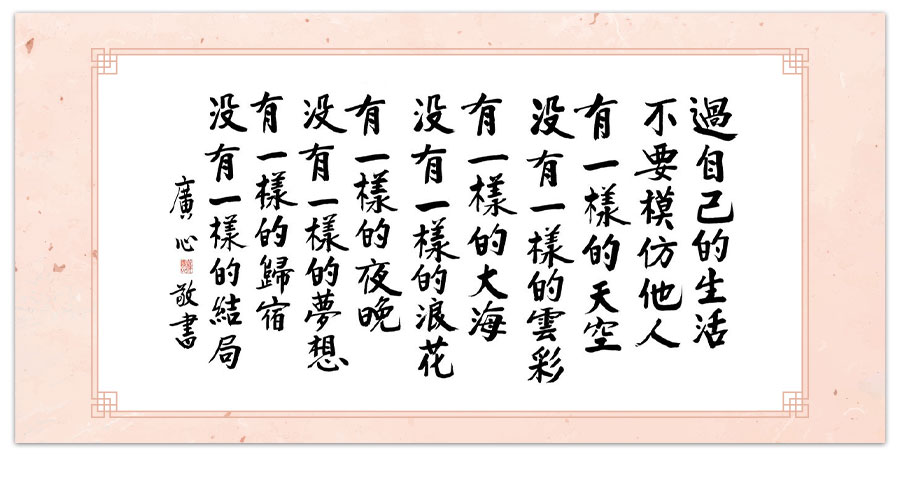 過自己的生活
不要模仿他人
有一樣的天空
没有一樣的雲彩
有一樣的大海
没有一樣的浪花
有一樣的夜晚
没有一樣的夢想
有一樣的歸宿
没有一樣的結局
廣心敬書